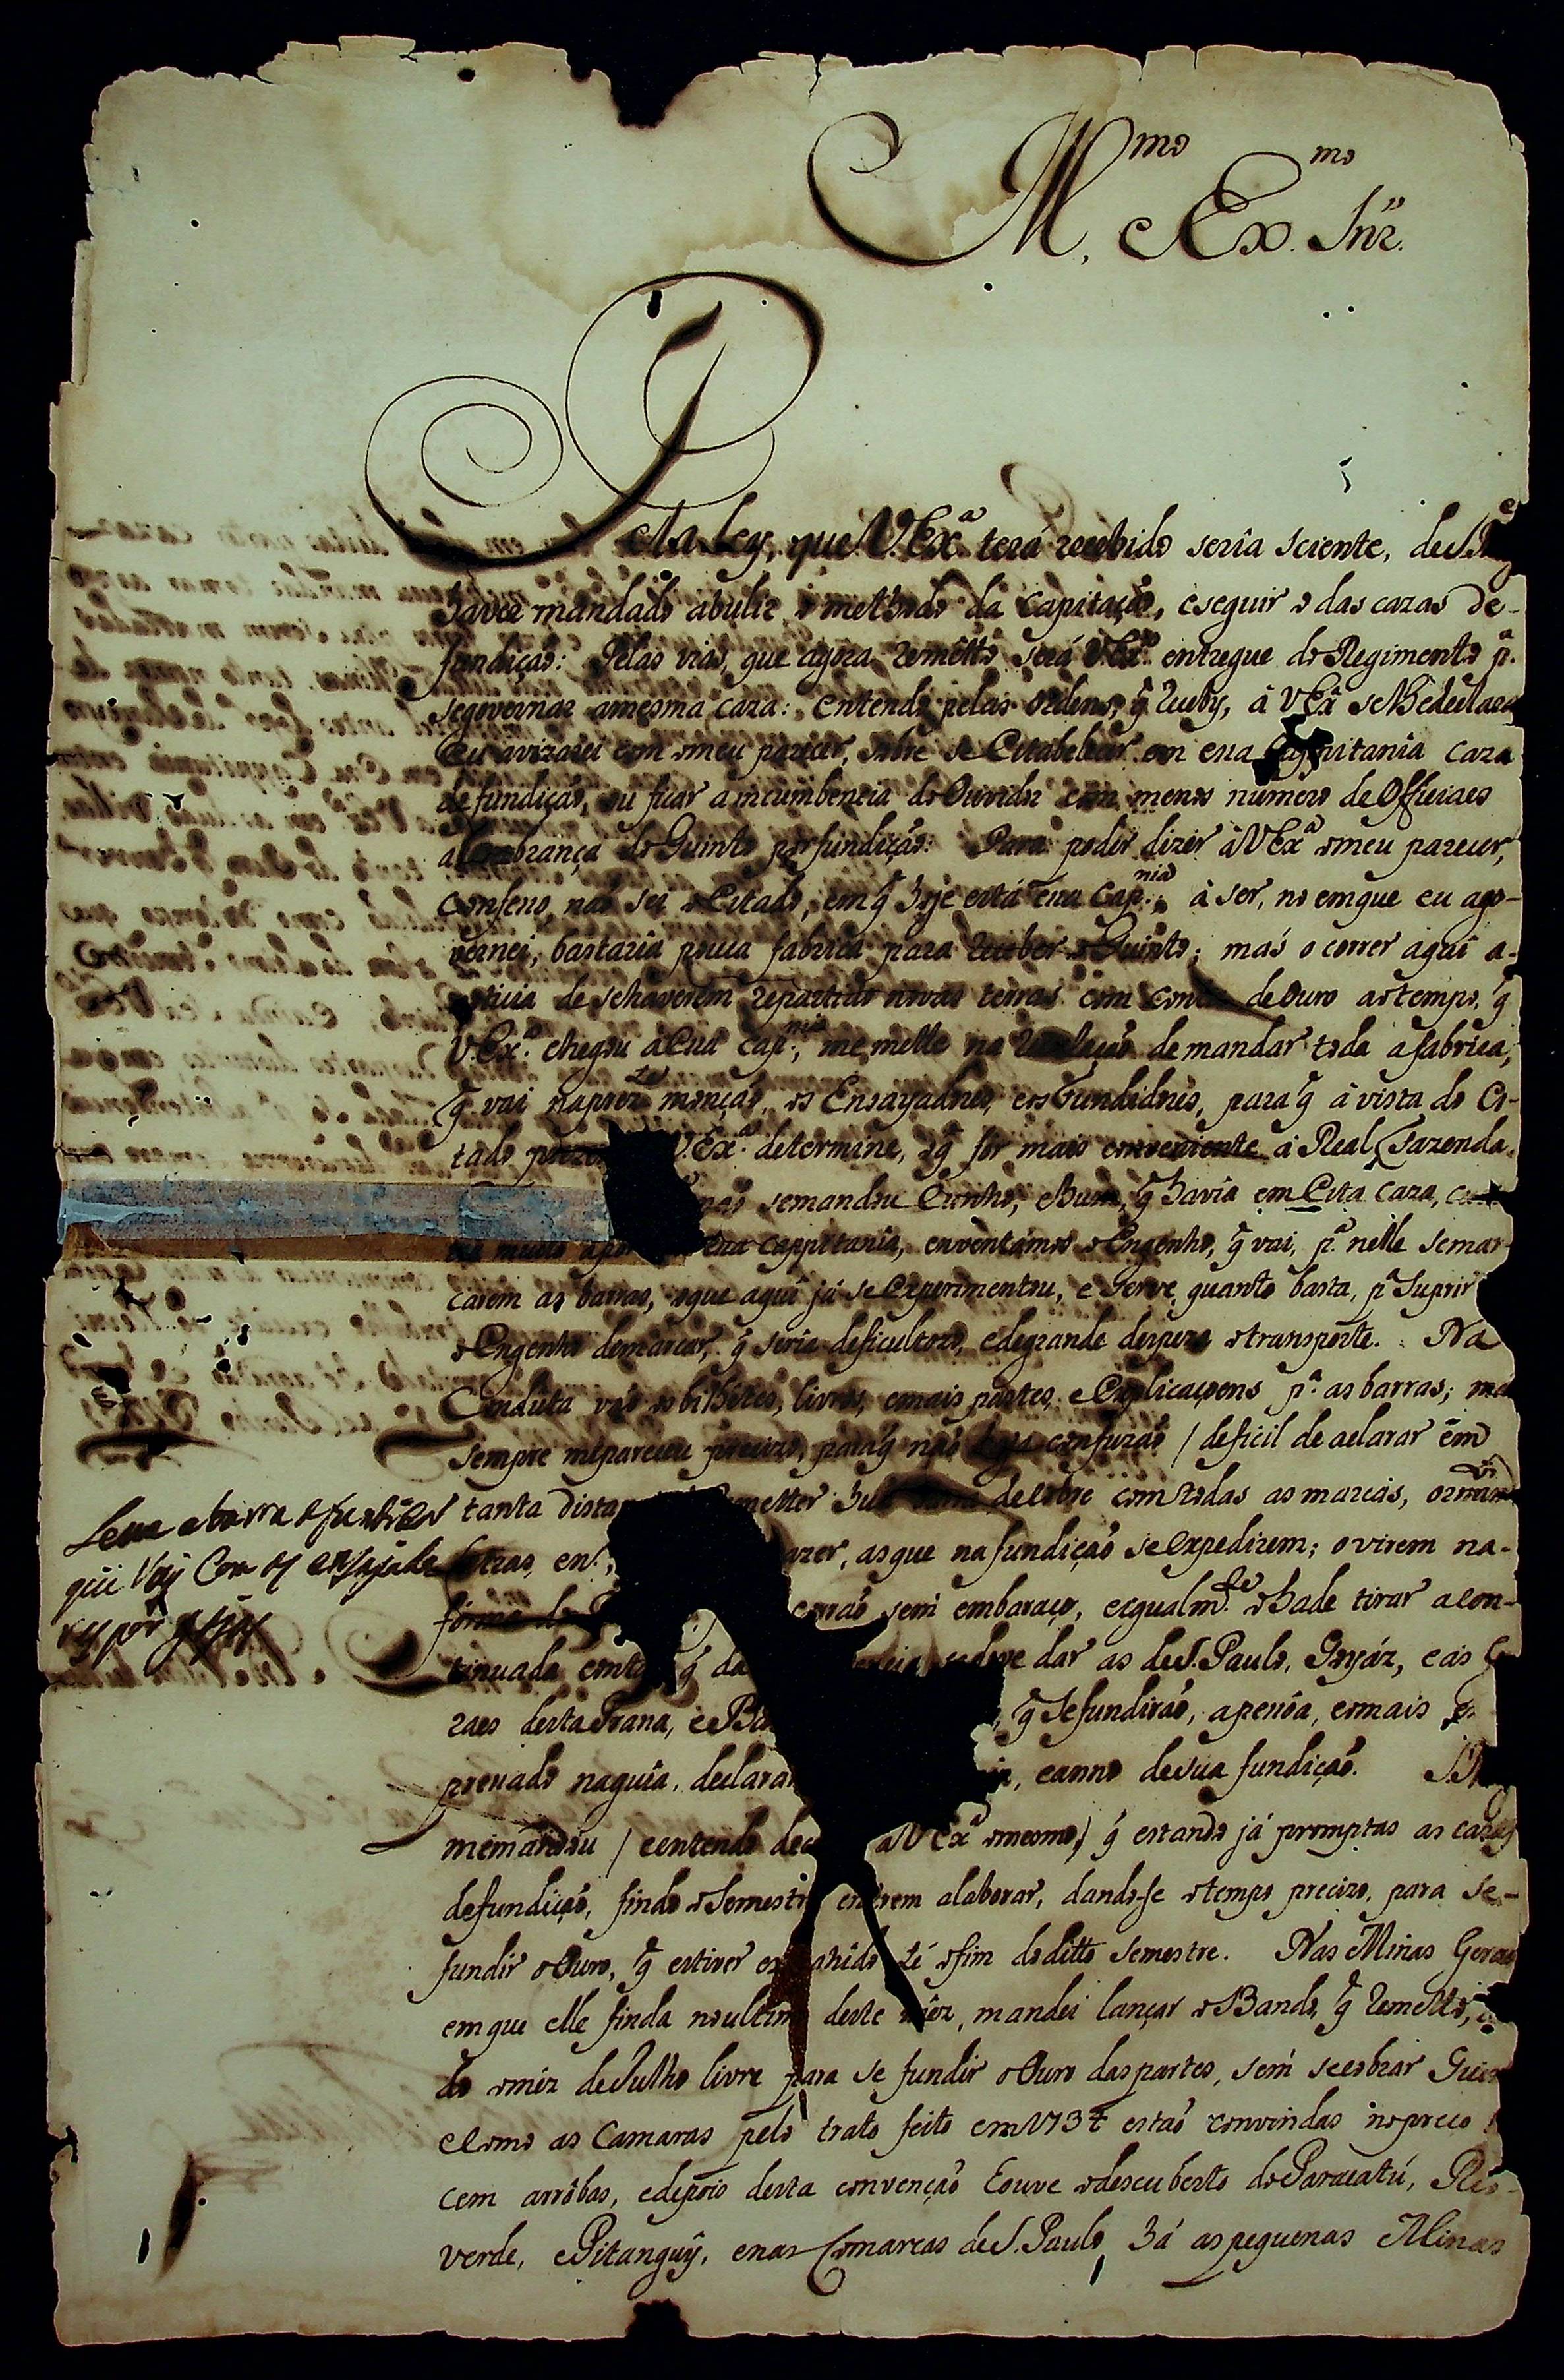 Ill.mo e Ex.mo Snr.
Pela Ley, que V. Ex.a terá recebido seria sciente, de S. Mag.e
haver mandado abulir o methodo da Capitação, e seguir o das cazas de-
fundição: Pelas vias, que agora remetto será V. Ex.a entregue do Regimento p.a
se governar a mesma caza: entendo pelas ordens, q̃ recebÿ, à V. Ex.a se lhe declara
eu avizarei com o meu parecer, sobre se Estabelecer em essa Cappitania caza
de fundição, ou ficar a incumbencia do Ouvidor com menos numero de Officiaes
a lembrança do Quinto por fundição: Para poder dizer à V. Ex.a o meu parecer,
confeso, não sei o Estado, em q̃ hoje está essa Cap.nia, à ser, no em que eu a go-
vernei, bastaria pouca fabrica para receber o Quinto; más o correr aqui a-
noticia de se haverem repartido novas terras com conta de Ouro ao tempo, q̃
V. Ex.a chegou à essa Cap.nia, me mette na rezolução de mandar toda a fabrica,
q̃ vai na prez.te monção, os Ensayadores, e os Fundidores, para q̃ à vista do Es-
tado prezente V. Ex.a determine, o q̃ for mais conveniente à Real Fazenda.
não se mandou Cunho, e hum, q̃ havia em Esta caza,
essa cappitania, enventamos o Engenho, q̃ vai, p.a nelle se mar-
carem as barras, o que aqui já se Experimentou, e Serve quanto basta, p.a Suprir
o Engenho de marcar, q̃ seria deficultozo, e de grande despeza o transporte. Na
Conduta vão os bilhetes, livros, e mais partes, e Explicaçoens p.a as barras; mas
sempre me pareceu precizo, para q̃ não haja confuzão / deficil de aclarar em
tanta distancia remetter hua barra de cobre com todas as marcas,
letras, azer, as que na fundição se expedirem; o virem na-
fórma do correrão sem embaraço, e egualm.te o hade tirar a con-
tinuada q̃ se deve dar as de S. Paulo, Goyáz, e as Ge
raes desta Prana, e q̃ Se fundirão, a peróa, e o mais ex
pressado na guia, declarando e anno de sua fundição. S. Mag
me mandou / e entendo a V. Ex.a o mesmo / q̃ estando já promptas as cazas
de fundição, findo o Semestre entrem a laborar, dando-se o tempo precizo, para se-
fundir o Ouro, q̃ estiver extrahido té o fim do ditto Semestre. Nas Minas Geraes
em que elle finda no ultimo deste mêz, mandei lançar o Bando, q̃ remetto,
do o mêz de Julho livre para se fundir o Ouro das partes, sem se cobrar Quinto
e como as Camaras pelo trato feito em 1734 estão convindas no preço
cem arrôbas, e depois desta convenção houve o descuberto do Paracatú, Rio-
verde, e Pitanguÿ, e nas Comarcas de S. Paulo há as pequenas Minas
Leva a barra o fundidor
que Vay Com os ensayado
res por